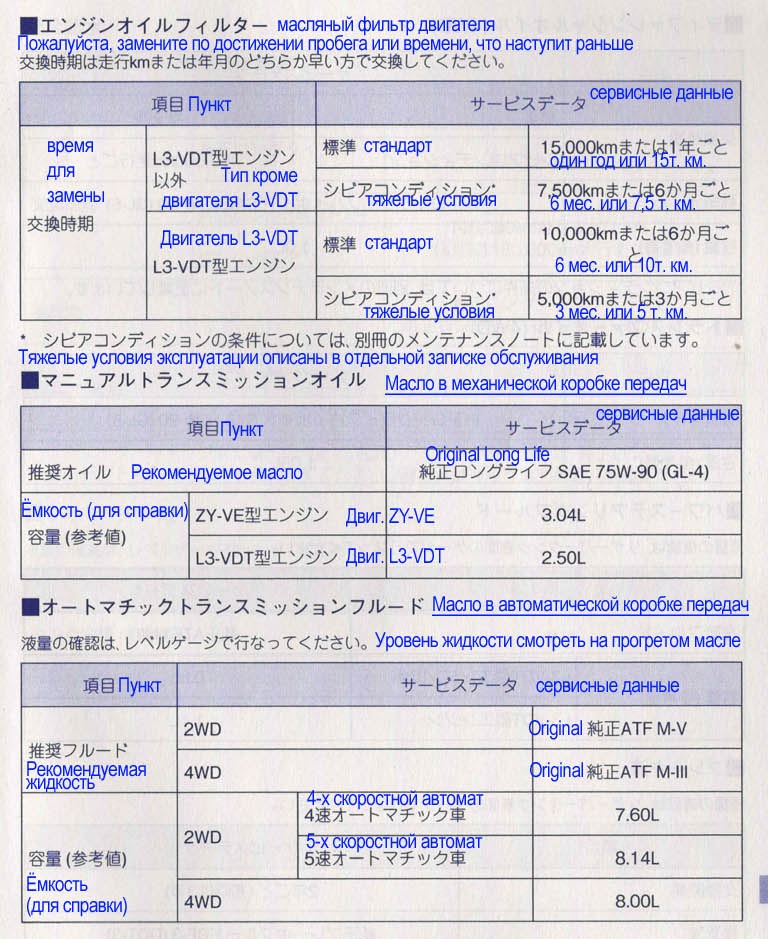 ■エンジンオイルフィルター масляный фильтр двигателя
Пожалуйста, замените по достижении пробега или времени, что наступит раньше
交換時期は走行kmまたは年月のどちらか早い方で交換してください。
項目 Пункт
サービスデータ сервисные данные
время
для
замены
交換時期
L3-VDT型エンジン
以外 Тип кроме
двигателя L3-VDT
標準 стандарт
15,000kmまたは1年ごと
один год или 15т. км.
シビアコンディション*
тяжелые условия
7,500kmまたは6か月ごと
6 мес. или 7,5 т. км.
Двигатель L3-VDT
L3-VDT型エンジン
標準 стандарт
10,000kmまたは6か月ご
と
6 мес. или 10т. км.
シビアコンディション*
тяжелые условия
5,000kmまたは3か月ごと
3 мес. или 5 т. км.
* シビアコンディションの条件については、別冊のメンテナンスノートに記載しています。
Тяжелые условия эксплуатации описаны в отдельной записке обслуживания
■マニュアルトランスミッションオイル Масло в механической коробке передач
項目 Пункт
サービスデータ сервисные данные
推奨オイル Рекомендуемое масло
Original Long Life
純正ロングライフ SAE 75W-90 (GL-4)
Ёмкость (для справки)
容量 (参考値)
ZY-VE型エンジン Двиг. ZY-VE
3.04L
L3-VDT型エンジン Двиг. L3-VDT
2.50L
■オートマチックトランスミッションフルード Масло в автоматической коробке передач
液量の確認は、レベルゲージで行なってください。 Уровень жидкости смотреть на прогретом масле
項目 Пункт
サービスデータ сервисные данные
推奨フルード
Рекомендуемая
жидкость
2WD
Original 純正ATF M-V
4WD
Original 純正ATF M-III
容量 (参考値)
Ёмкость
(для справки)
2WD
4-х скоростной автомат
4速オートマチック車
7.60L
5-х скоростной автомат
5速オートマチック車
8.14L
4WD
8.00L